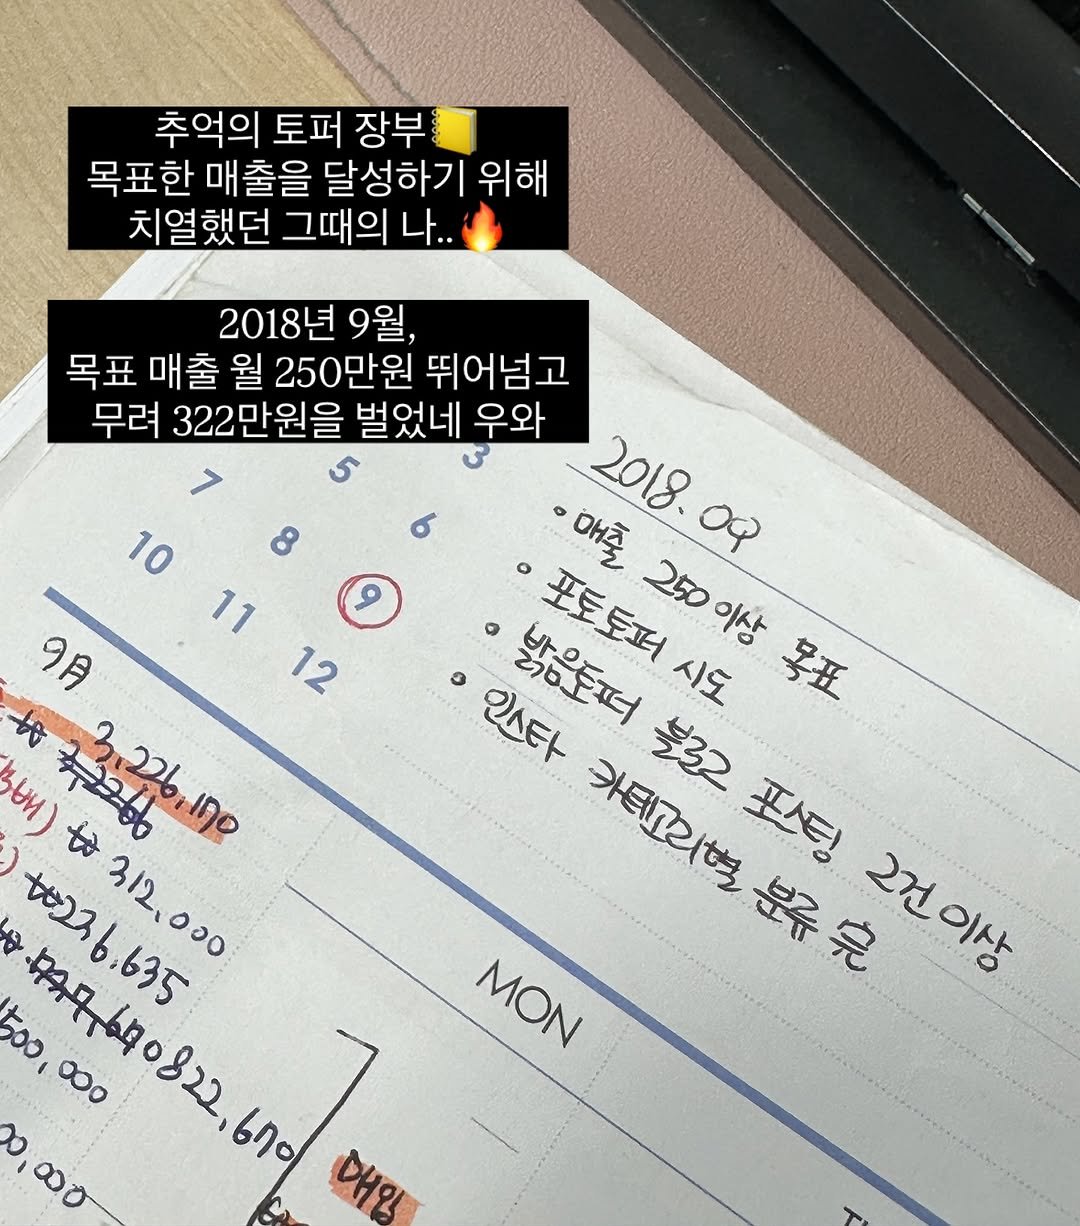 추억의 토퍼 장부📒
목표한 매출을 달성하기 위해
치열했던 그때의 나..🔥
2018년 9월,
목표 매출 월 250만원 뛰어넘고
무려 322만원을 벌었네 우와
3
5
7
6
8
10
9
11
12
2018.09
• 매출 250이상 목표
• 포토토퍼 시도
• 밝음토퍼 블로그 포스팅 2건 이상
• 인스타 카테고리별 분류 完
9月
₩ 3,226,170
₩ 312,000
₩ 236,635
822,670
500,000
00,000
MON
매입